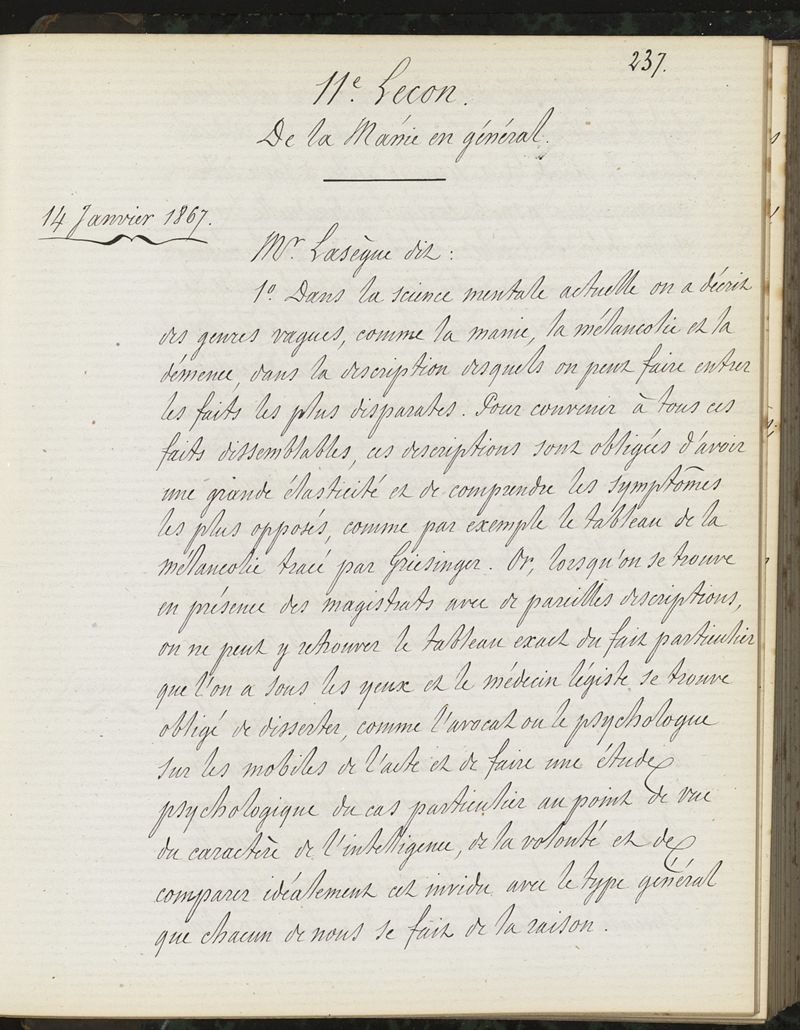 237.
11e. Lecon.
De la Manie en général.
14 Janvier 1867.
Mr. Lasègue dit :
1o. Dans la science mentale actuelle on a décrit
des genres vagues, comme la manie, la mélancolie et la
démence, dans la description desquels on peut faire entrer
les faits les plus disparates. Pour convenir à tous ces
faits dissemblables, ces descriptions sont obligées d'avoir
une grande élasticité et de comprendre les symptômes
les plus opposés, comme par exemple le tableau de la
mélancolie tracé par Griesinger. Or, lorsqu'on se trouve
en présence des magistrats avec de pareilles descriptions,
on ne peut y retrouver le tableau exact du fait particulier
que l'on a sous les yeux et le médecin légiste se trouve
obligé de disserter, comme l'avocat ou le psychologue
sur les mobiles de l'acte et de faire une étude
psychologique du cas particulier au point de vue
du caractère de l'intelligence, de la volonté et de
comparer idéalement cet invidu avec le type général
que chacun de nous se fait de la raison.